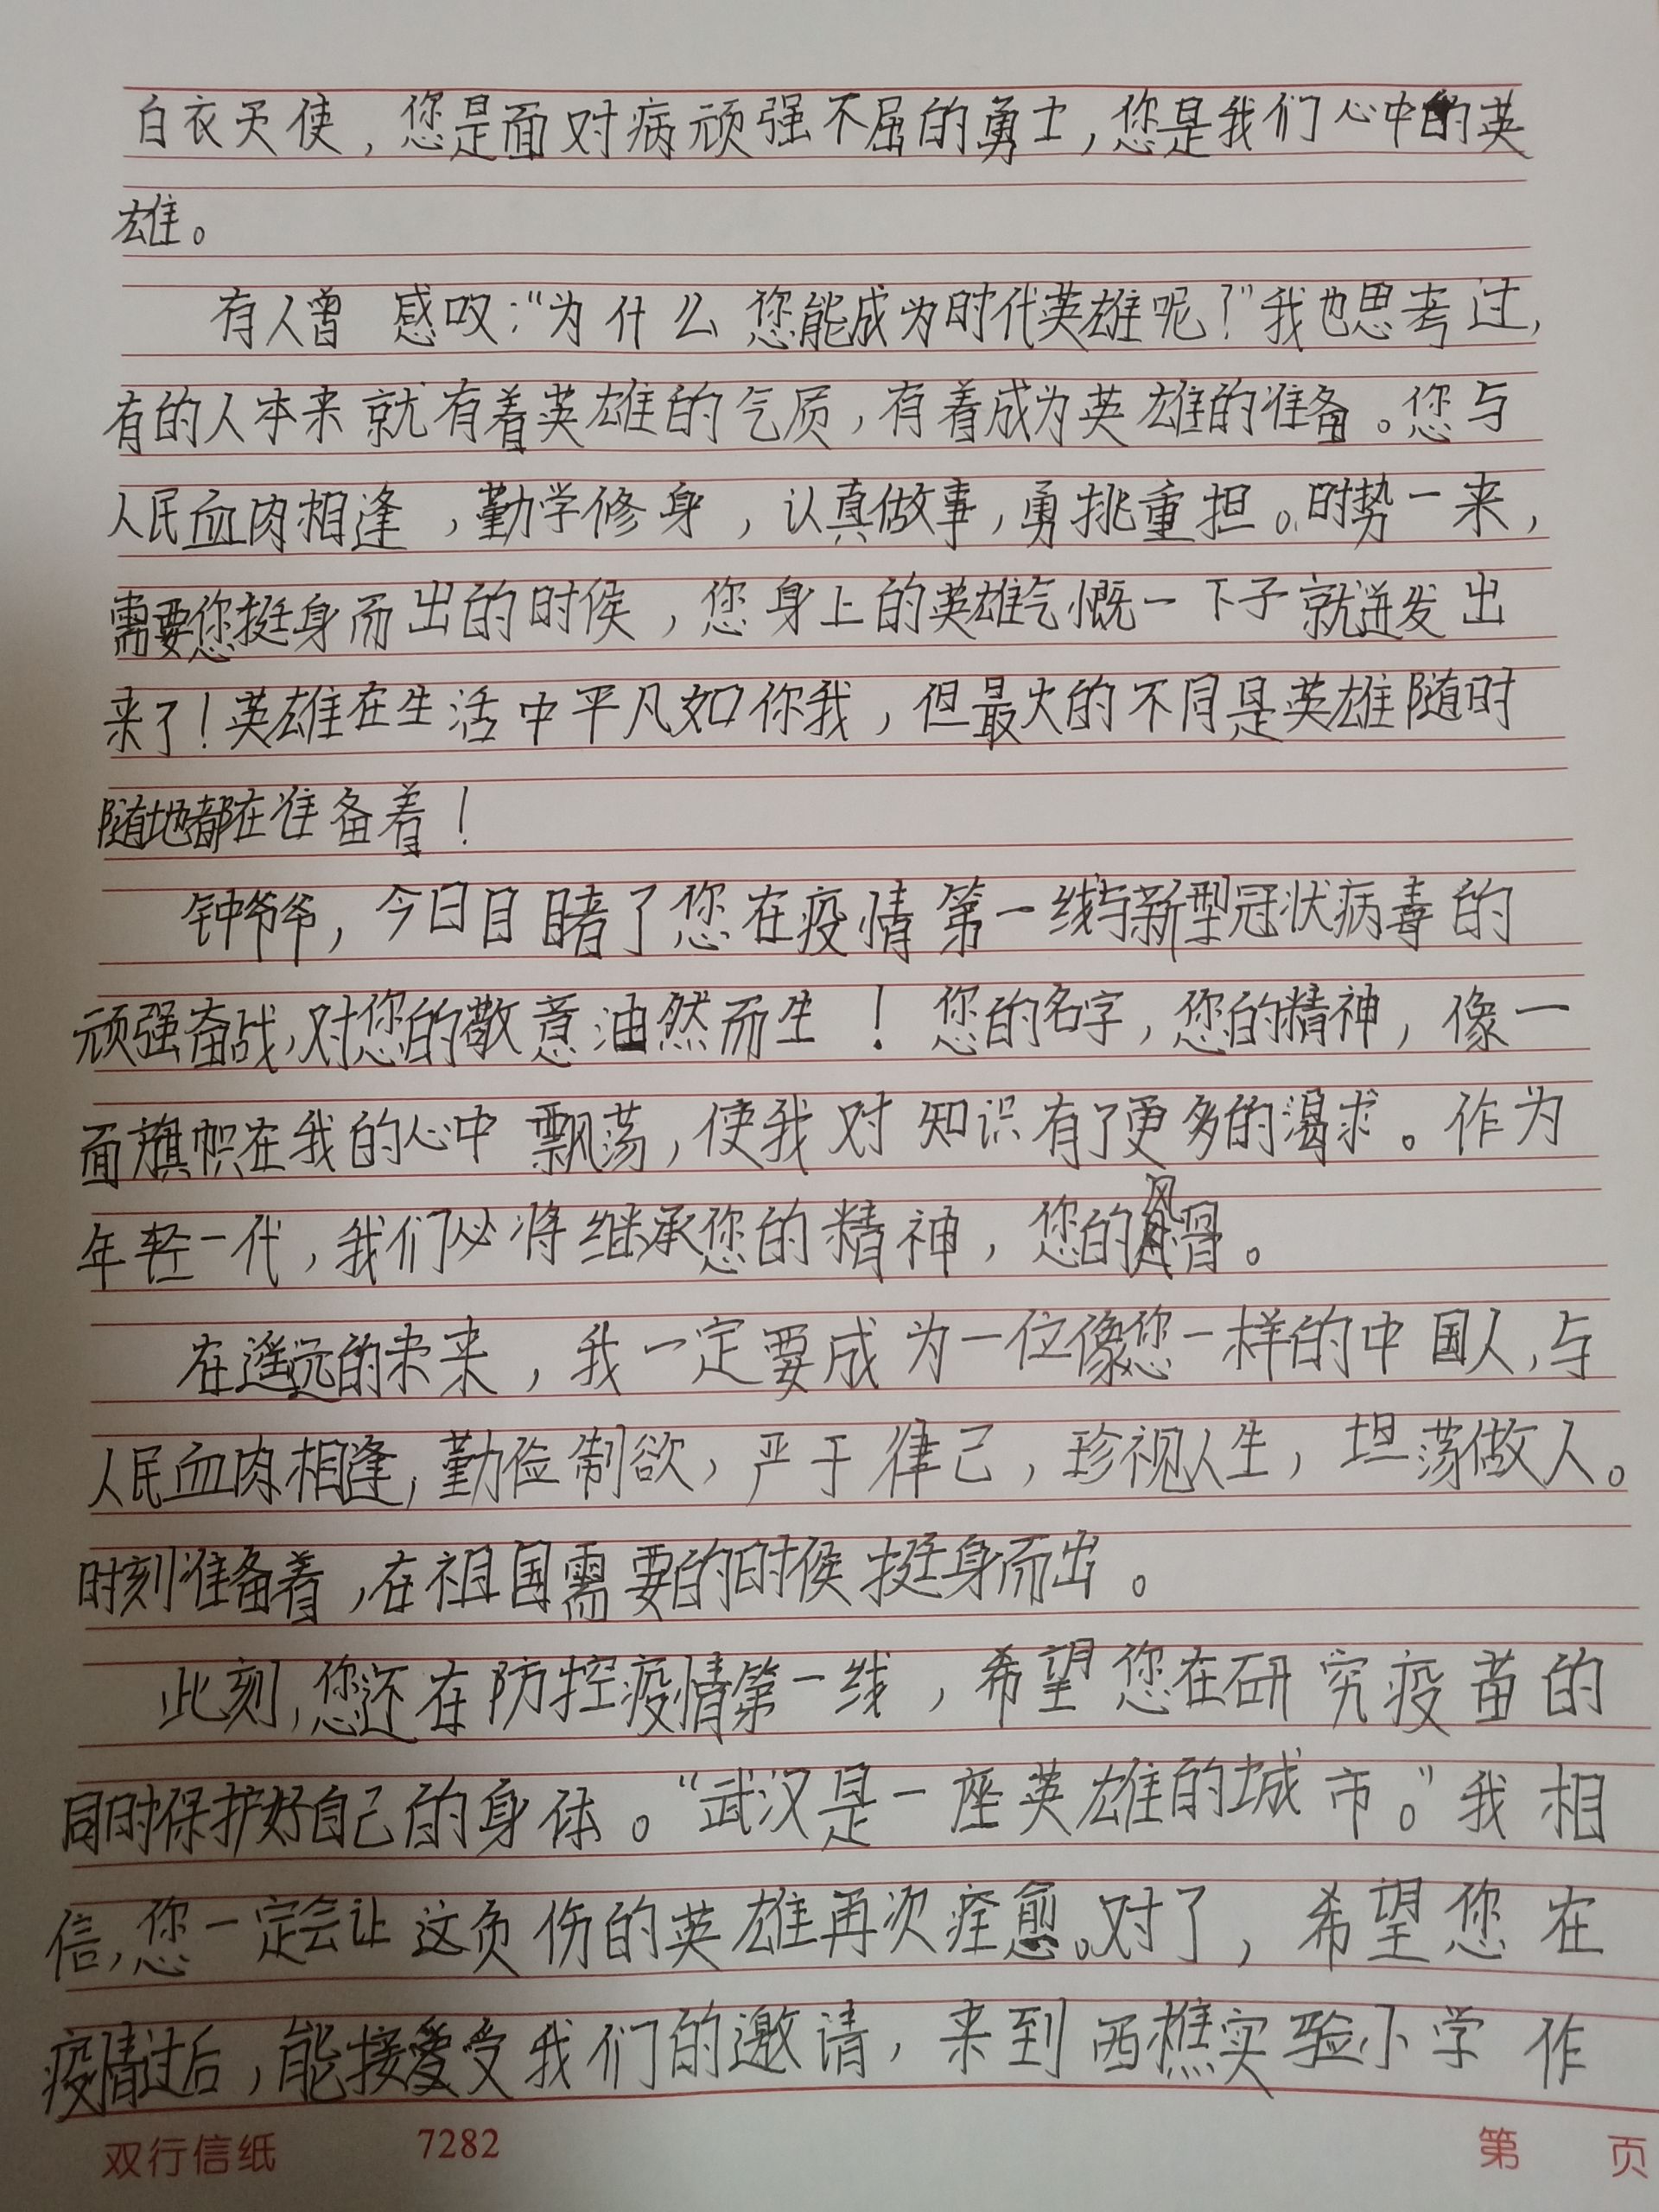 白衣天使，您是面对病顽强不屈的勇士，您是我们心中的英
雄。
有人曾感叹：“为什么您能成为时代英雄呢？”我也思考过，
有的人本来就有着英雄的气质，有着成为英雄的准备。您与
人民血肉相逢，勤学修身，认真做事，勇挑重担。时势一来，
需要您挺身而出的时候，您身上的英雄气慨一下子就迸发出
来了！英雄在生活中平凡如你我，但最大的不同是英雄随时
随地都在准备着！
钟爷爷，今日目睹了您在疫情第一线与新型冠状病毒的
顽强奋战，对您的敬意油然而生！您的名字，您的精神，像一
面旗帜在我的心中飘荡，使我对知识有了更多的渴求。作为
年轻一代，我们必将继承您的精神，您的风骨。
在遥远的未来，我一定要成为一位像您一样的中国人，与
人民血肉相逢，勤俭制欲，严于律己，珍视人生，坦荡做人。
时刻准备着，在祖国需要的时候挺身而出。
此刻，您还在防控疫情第一线，希望您在研究疫苗的
同时保护好自己的身体。“武汉是一座英雄的城市。”我相
信，您一定会让这负伤的英雄再次痊愈。对了，希望您在
疫情过后，能接受我们的邀请，来到西樵实验小学作
双行信纸 7282 第 页